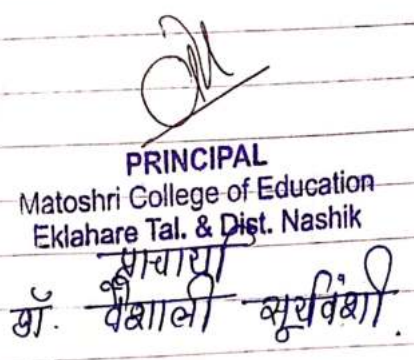 PRINCIPAL
Matoshri College of Education
Eklahare Tal. & Dist. Nashik
प्राचार्या
डॉ. वैशाली सूर्यवंशी